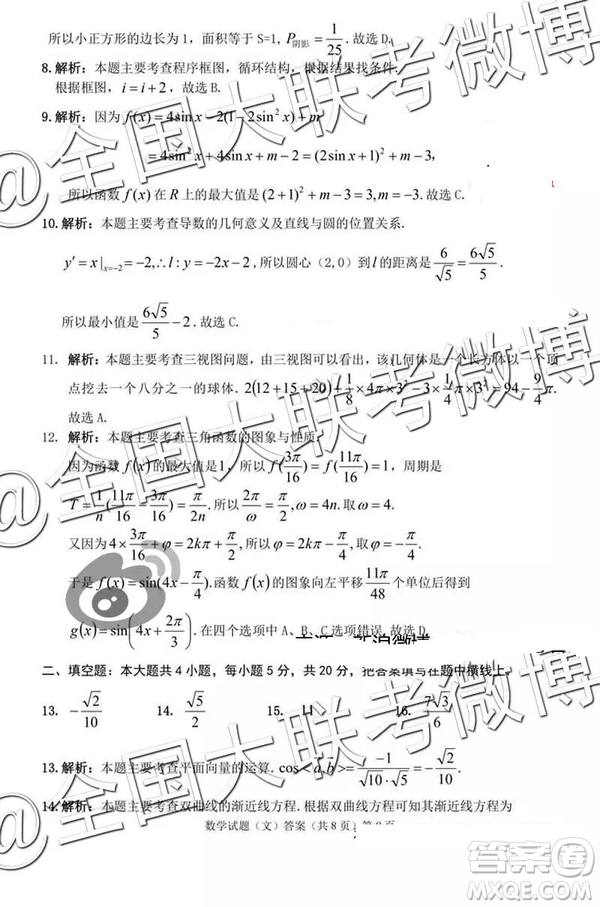 所以小正方形的边长为 1，面积等于 S=1, P阴影 = 1/25. 故选 D.
8. 解析：本题主要考查程序框图，循环结构，根据结果找条件.
根据框图，i = i + 2，故选 B.
9. 解析：因为 f(x)=4sin x-2(1-2sin²x)+m
=4sin²x+4sin x+m-2=(2sin x+1)²+m-3,
所以函数 f(x) 在 R 上的最大值是 (2+1)²+m-3=3, 故选 C.
10. 解析：本题主要考查导数的几何意义及直线与圆的位置关系.
y′=x|x=-2=-2,∴l:y=-2x-2,所以圆心 (2,0) 到 l 的距离是 6/√5=6√5/5.
所以最小值是 6√5/5-2. 故选 C.
11. 解析：本题主要考查三视图问题，由三视图可以看出，该几何体是一个长方体以一个顶
点挖去一个八分之一的球体. 2(12+15+20)+1/8×4π×3²-3×1/4π×3²=94-9/4π.
故选 A.
12. 解析：本题主要考查三角函数的图象与性质.
因为函数 f(x) 的最大值是1，所以 f(3π/16)=f(11π/16)=1，周期是
T=1/n(11π/16-3π/16)=π/2n. 所以 ω=4n. 取 ω=4.
又因为 4×3π/16+φ=2kπ+π/2, 所以 φ=2kπ-π/4, 取 φ=-π/4.
于是 f(x)=sin(4x-π/4). 函数 f(x) 的图象向左平移 11π/48 个单位后得到
g(x)=sin(4x+2π/3). 在四个选项中 A、B、C 选项错误, 故选 D.
二、填空题：本大题共 4 小题，每小题 5 分，共 20 分，把答案填写在题中横线上。
13. -√2/10 14. √5/2 15. 11 16. 7√3/6
13. 解析：本题主要考查平面向量的运算. cos<a,b>=-1/(√10·√5)=-√2/10.
14. 解析：本题主要考查双曲线的渐近线方程. 根据双曲线方程可知其渐近线方程为
数学试题（文）答案（共 8 页）
@全国大联考微博
@全国大联考微博
@全国大联考微博
答案卷
MXQE.COM